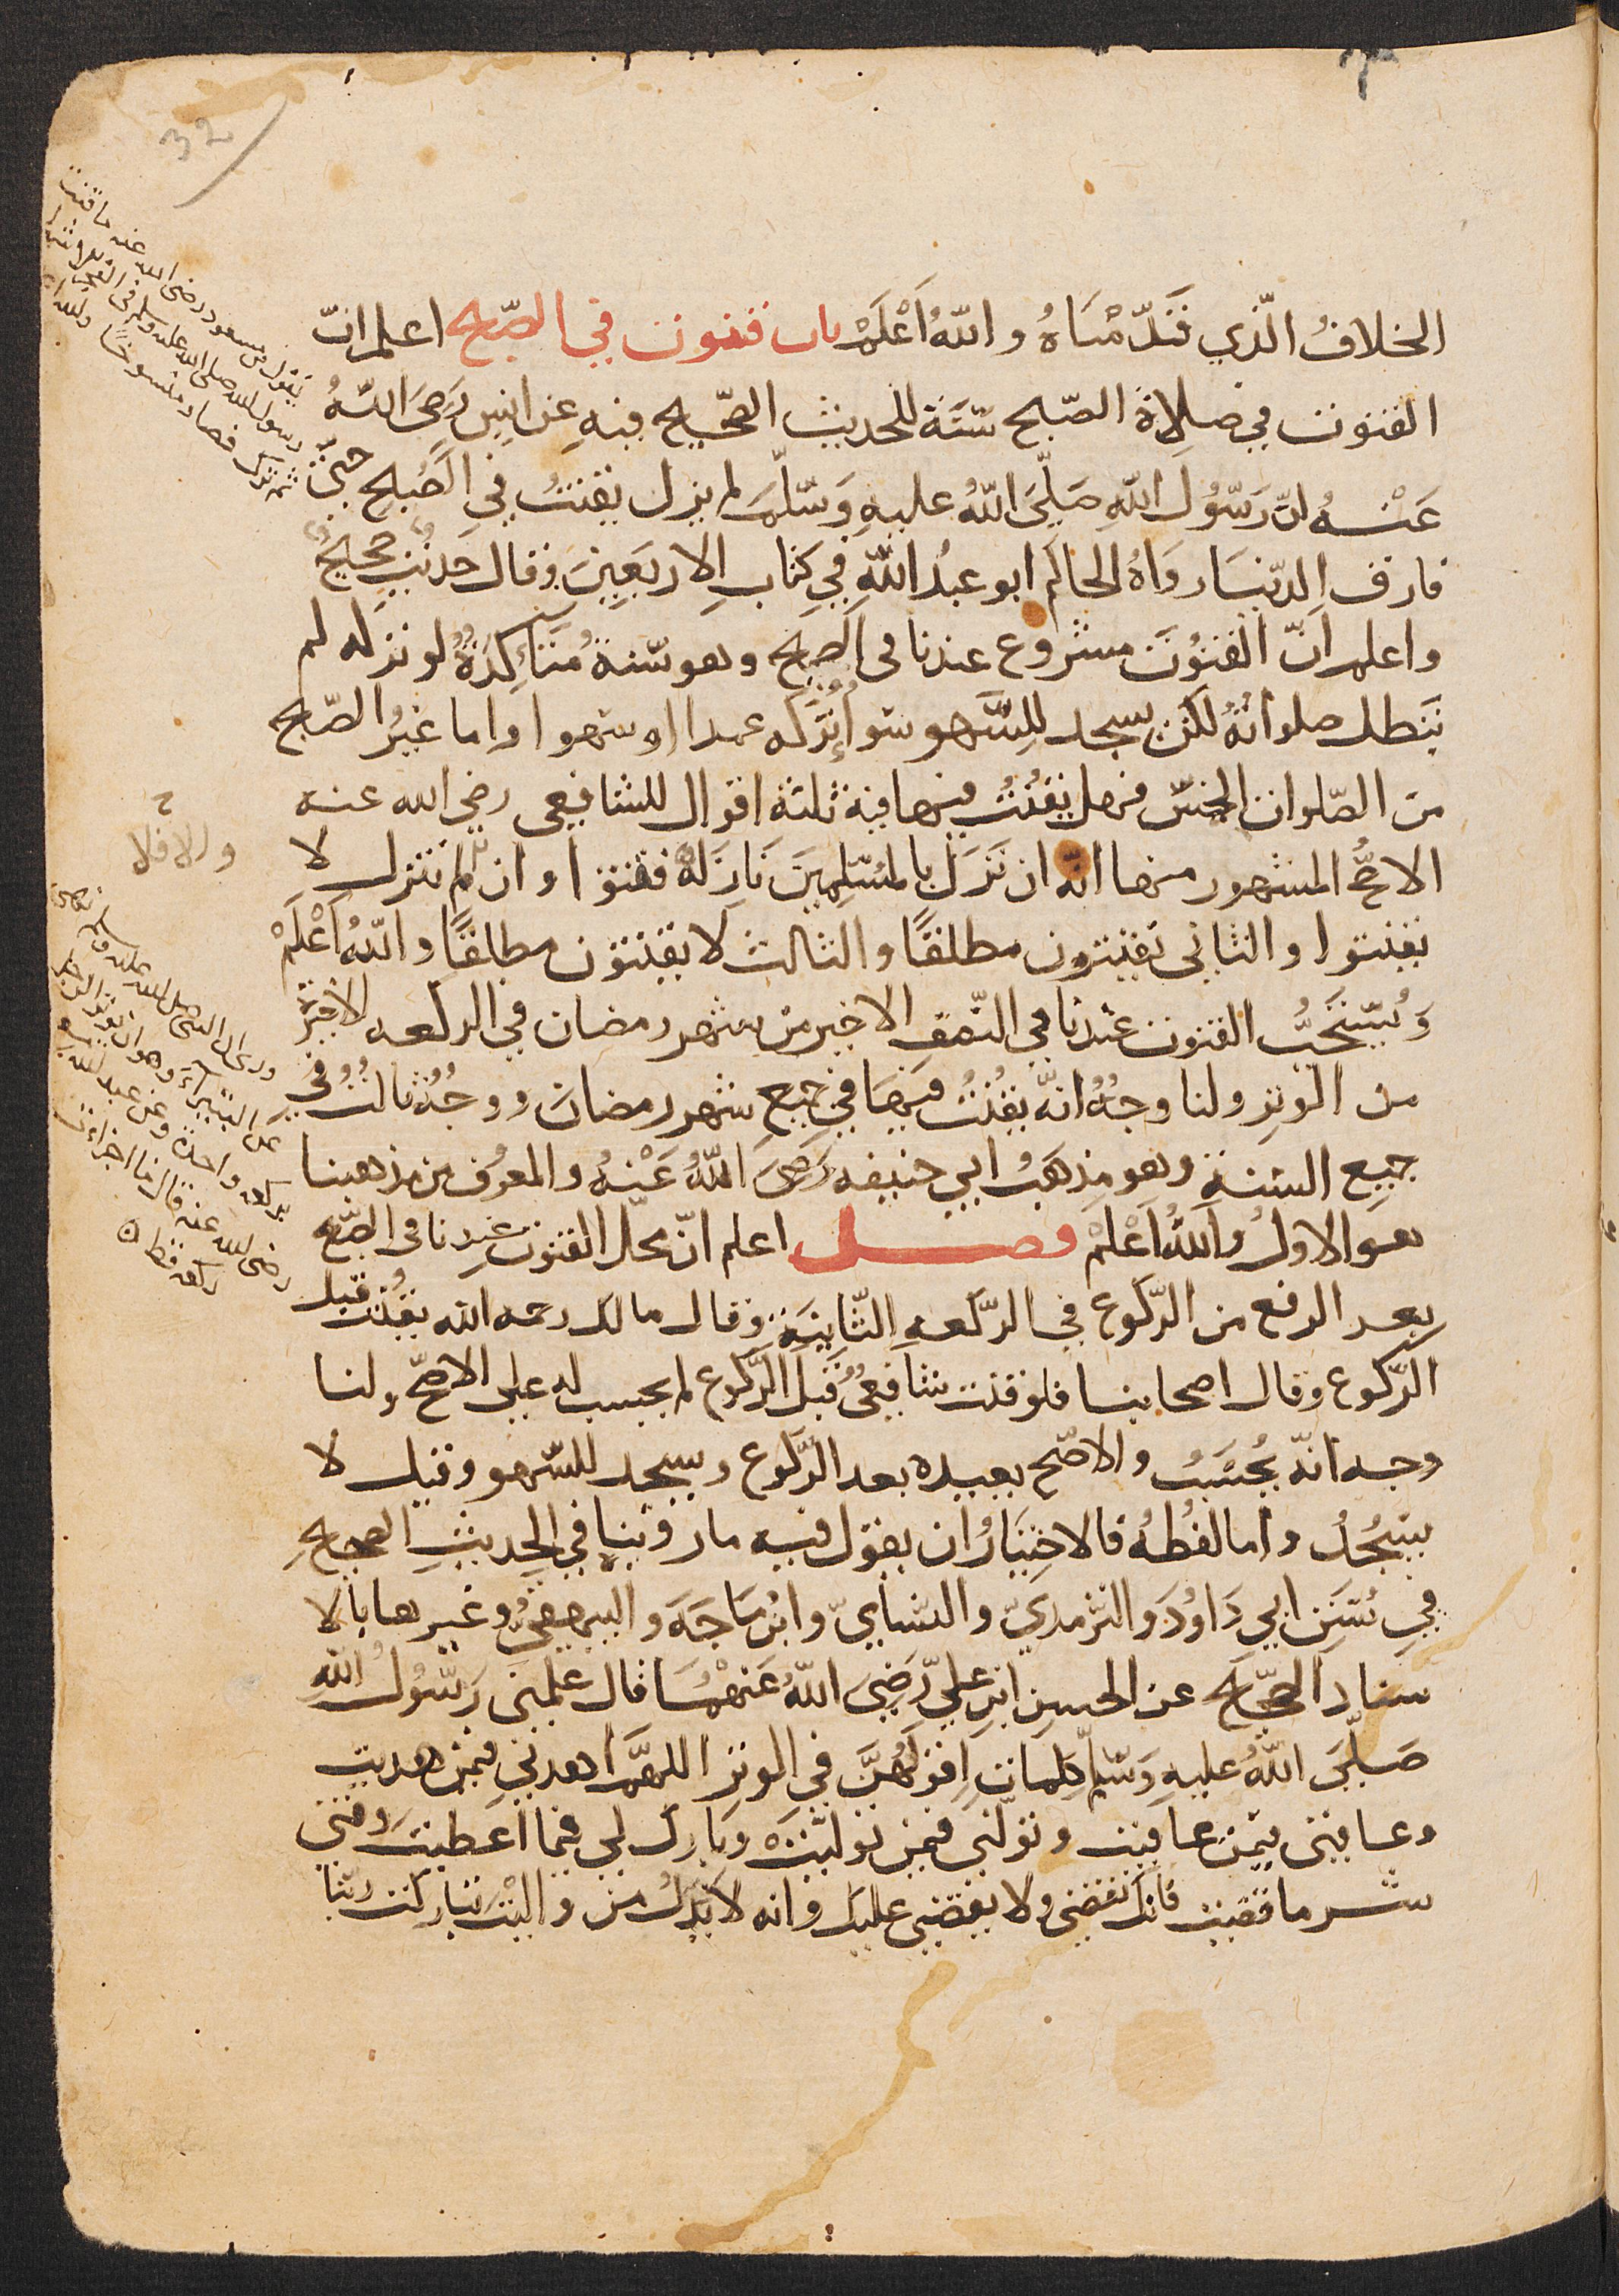 32
الخلافُ الّذي قَدّمْنَاهُ واللّهُ اَعْلَمْ باب قنوت في الصّبح اعلم انّ
القنوت في صلاة الصّبح سُنَّة للحديث الصّحيح فيهِ عن انسٍ رَضِيَ اللّهُ
عَنْهُ انّ رَسُولَ اللّهِ صَلَّى اللّهُ عليهِ وَسَلَّمَ لم يزل يقنتُ في الصُبحِ حتّى
فارق الدّنيَا رَوَاهُ الحاكم ابو عبدُ اللّهِ في كتاب الاربَعِينَ وقال حَديثٌ صحيحٌ
واعلم انّ القنُوتَ مشروع عندنا في الصبح وهو سنةٌ مُتَأَكِدَةٌ لو تركه لم
تبَطل صلواتهُ لكن يسجد للِسَّهو سَوأً تركه عمدا او سهوا واما غيرُ الصّبح
من الصّلوات الخمس فهل يقنُتُ فيها فيه ثلثة اقوال للشافعي رضي الله عنه
الاصحّ المشهور منها انّه ان نَزَلَ بالمسُلِمِينَ نَازِلَة قنتوا وان لم تنزل لا
يقنتوا والثاني يقنتون مطلقًا والثالث لا يقنتون مطلقًا واللّهُ اَعْلَمْ
وَيُستَحَبُّ القنوت عندنا في النّصف الاخير من شهر رمضان في الركعه الاخيرة
من الوتر ولنا وجهٌ انّه يقنُتُ فيهَا في جميعِ شهر رمضان ووجهٌ ثالثٌ في
جميع السّنةِ وهو مذهَبُ ابي حنيفه رَضِيَ اللّهُ عَنْهُ والمعرُف من مذهبنا
هو الاولُ واللّهُ اَعْلَمْ فصل اعلم انّ محلّ القنوت عندنا في الصّبح
بعد الرفع من الرّكوع في الرّكعهِ الثّانِيَةِ وقال مالك رحمه الله يقُنت قبل
الرّكوع وقال اصحابنا فلو قنت شافعيٌ قبل الرّكوع لم يحسب له على الاصحّ ولنا
وجه انّه يُحْسَبُ والاصّح يعيده بعد الرّكوع ويسجد للسّهو وقيل لا
يسْجُدُ واما لفُظهُ فالاخِتيَارُ ان يقول فيه ما روينا في الحديثِ الصحيحِ
في سُنَنِ ابي دَاوُدَ والترّمديّ والنّسايّ وابن مَاجَهَ والبيهقيّ وغيرها بالا
سناد الصّحيح عن الحسن ابن عليّ رَّضِيَ اللّهُ عَنهُمَا قال علمني رَسُولُ اللّهِ
صَلّىَ اللّهُ عليهِ وَسَلّم كلمات اِقولهُنَّ في الوتر اللهمَّ اهدني فيمن هديت
وعافني فيمَن عافيت وتولّني فيمن توليّتَ وبارك لي فيما اَعطيتَ وقني
شر ما قضيت فانّك تقضي ولا يقضى عليك وانه لا يَذِلُّ من واليْتَ تباركت ربّنا
يقول بن مسعود رضى الله عنه ما قنت
رسول الله صلى الله عليه وسلم في الفجر الا شهرا
ثم ترك فصار منسوخًا والله
والا فلا
وروى ان النبى صلى الله عليه وسلم نهى
عن البتيراء وهو ان يوتر الرجل
بركعة واحدة وعن عبد الله
رضى الله عنه قال ما اجزأت
ركعة قط